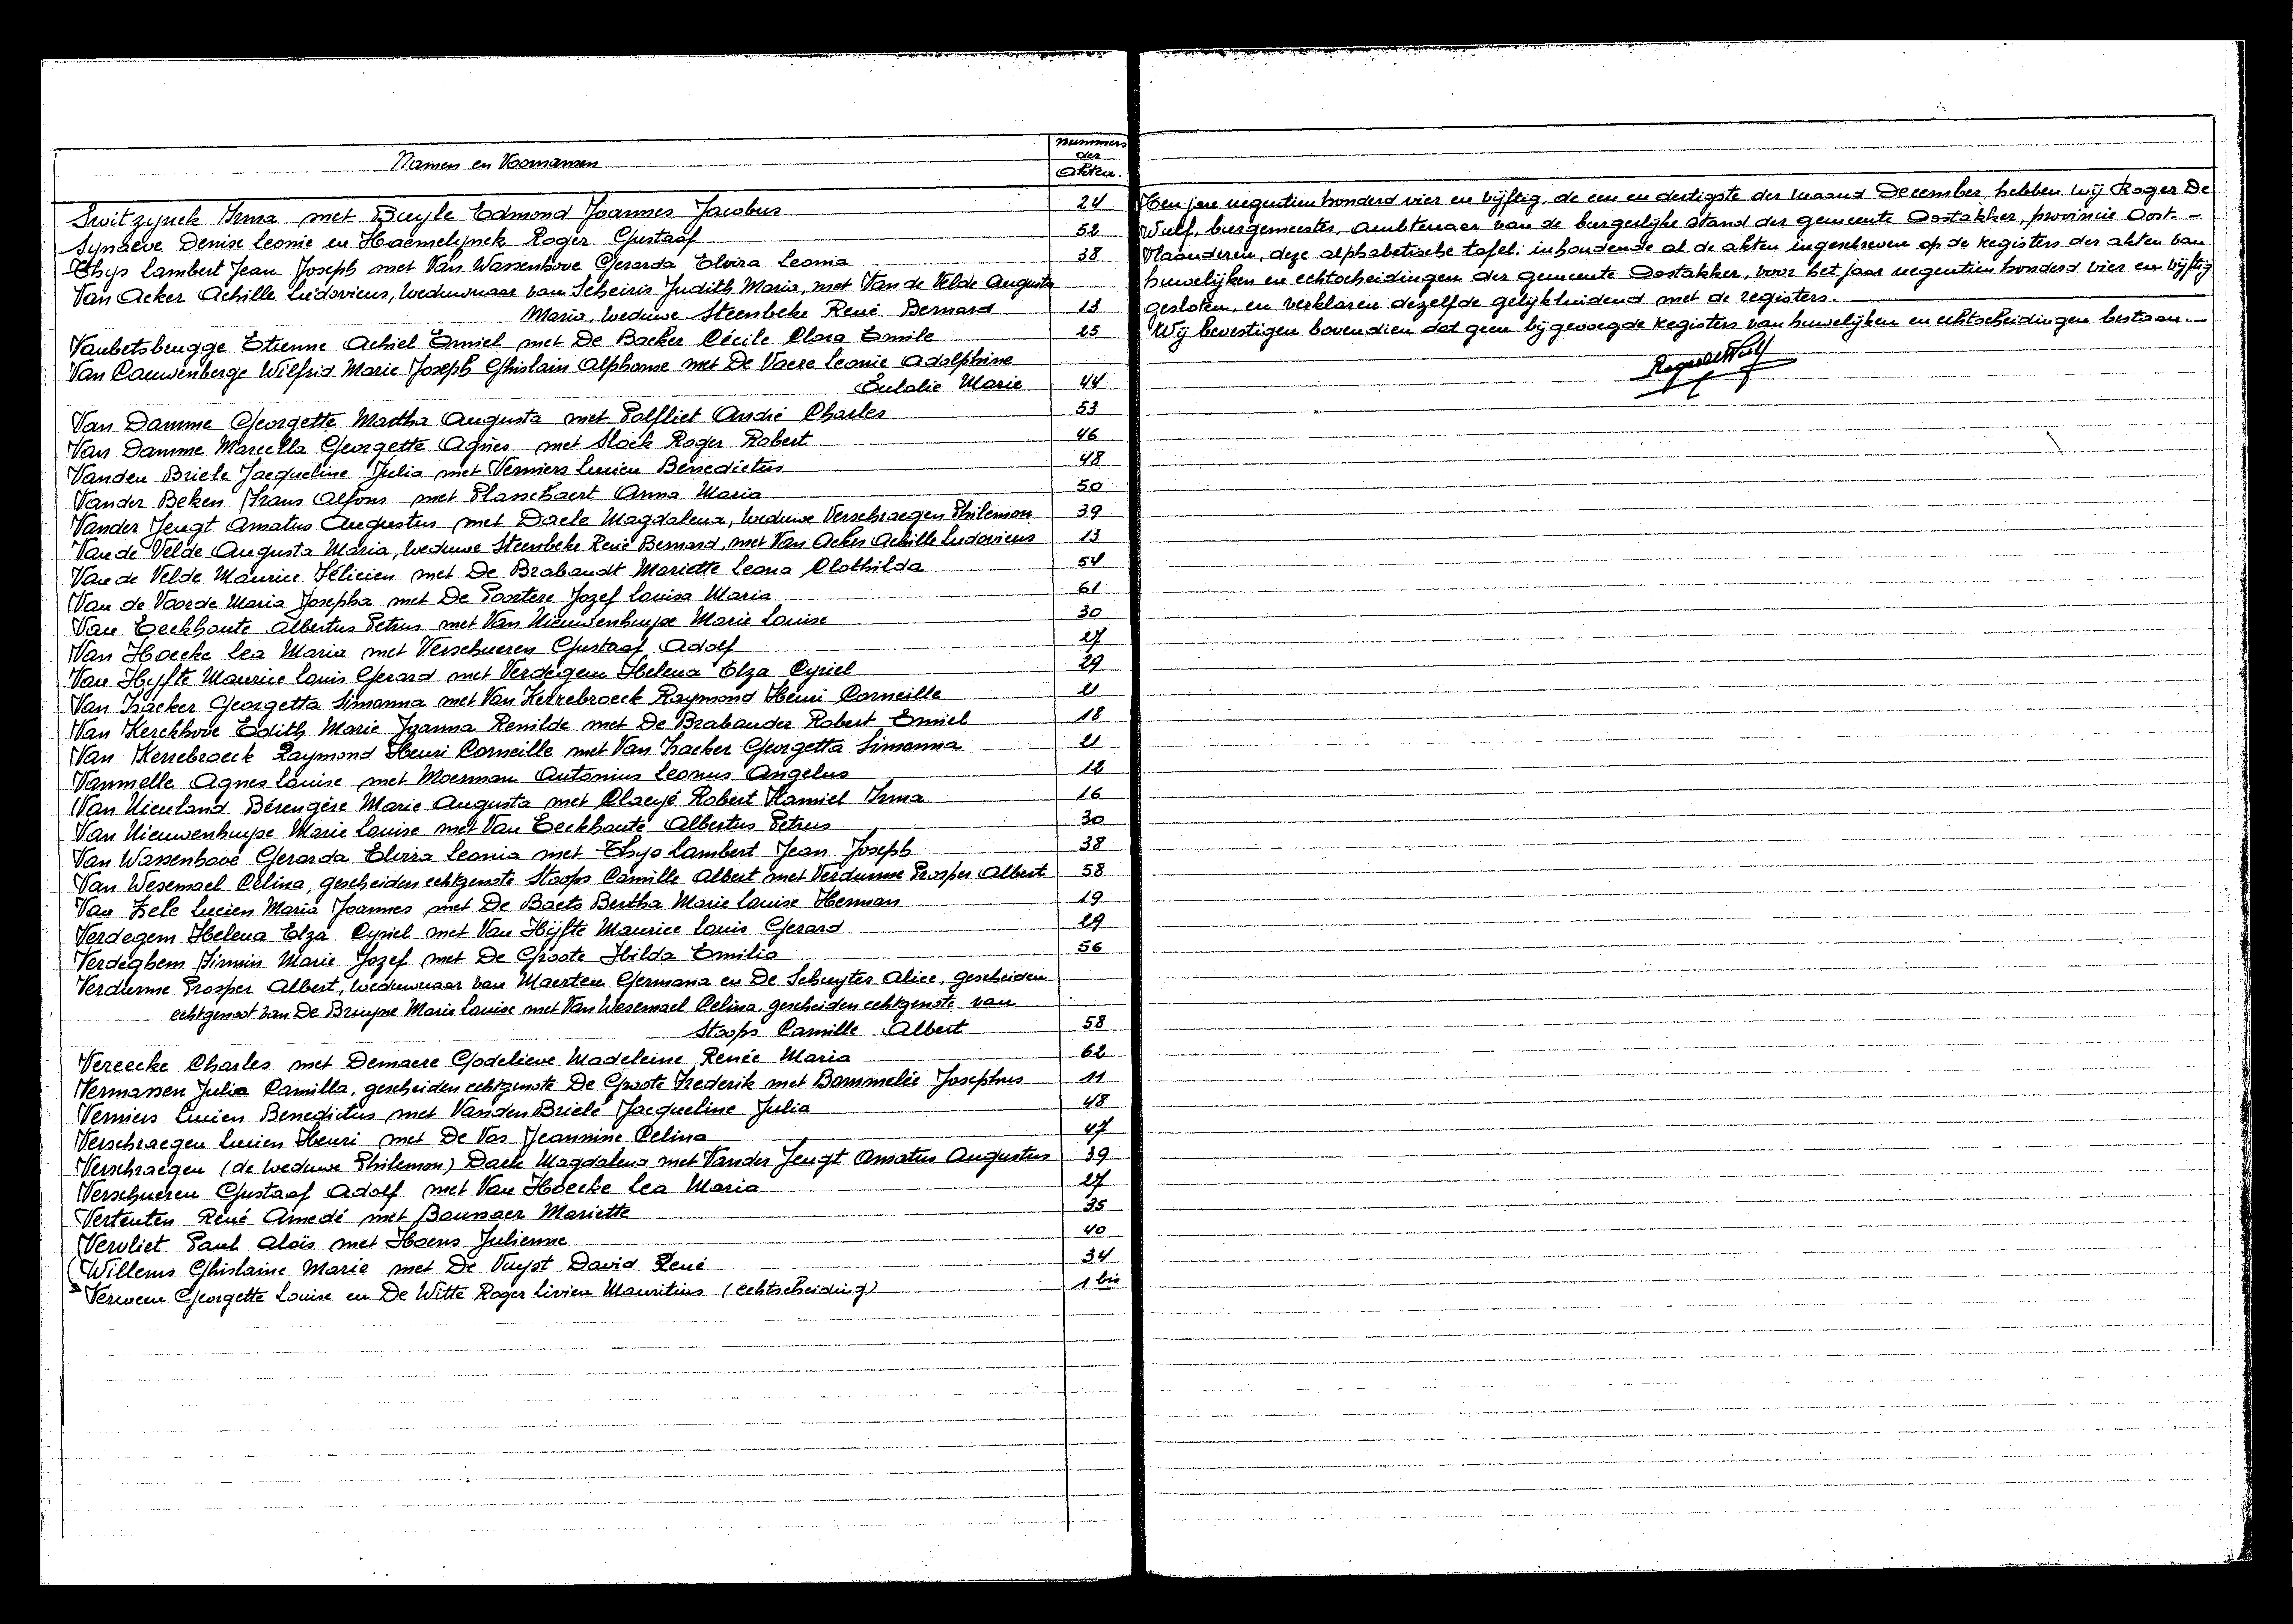 Namen en Voornamen
nummers
der
akten.
Switzynck Irma met Buyle Edmond Joannes Jacobus 24
Synaeve Denise Leonie en Haemelynck Roger Gustaaf 52
Thys Lambert Jean Joseph met Van Wassenhove Gerarda Elvira Leonia 38
Van Acker Achille Ludovicus, weduwnaar van Scheiris Judith Maria, met Van de Velde Augusta
Maria, weduwe Steenbeke René Bernard 13
Vanbetsbrugge Etienne Achiel Emiel met De Backer Cécile Clara Emile 25
Van Cauwenberge Wilfrid Marie Joseph Ghislain Alphonse met De Vaere Leonie Adolphine
Eulalie Marie 44
Van Damme Georgette Martha Augusta met Polfliet André Charles 53
Van Damme Marcella Georgette Agnes met Slock Roger Robert 46
Vanden Briele Jacqueline Julia met Verniers Lucien Benedictus 48
Vander Beken Frans Alfons met Plasschaert Anna Maria 50
Vander Jeugt Amatus Augustus met Daele Magdalena, weduwe Verschraegen Philemon 39
Van de Velde Augusta Maria, weduwe Steenbeke René Bernard, met Van Acker Achille Ludovicus 13
Van de Velde Maurice Félicien met De Brabandt Mariette Leona Clothilda 54
Van de Voorde Maria Josepha met De Poortere Jozef Louisa Maria 61
Van Eeckhoute Albertus Petrus met Van Nieuwenhuyse Marie Louise 30
Van Hoecke Lea Maria met Verschueren Gustaaf Adolf 27
Van Hyfte Maurice Louis Gerard met Verdegem Helena Elza Cyriel 29
Van Isacker Georgetta Simonna met Van Kerrebroeck Raymond Henri Corneille 21
Van Kerckhove Edith Marie Joanna Renilde met De Brabander Robert Emiel 18
Van Kerrebroeck Raymond Henri Corneille met Van Isacker Georgetta Simonna 21
Vanmelle Agnes Louise met Moerman Antonius Leonus Angelus 12
Van Nieuland Bérengère Marie Augusta met Claeyé Robert Kamiel Irma 16
Van Nieuwenhuyse Marie Louise met Van Eeckhoute Albertus Petrus 30
Van Wassenhove Gerarda Elvira Leonia met Thys Lambert Jean Joseph 38
Van Wesemael Celina, gescheiden echtgenote Stoops Camille Albert met Verdurme Prosper Albert 58
Van Zele Lucien Maria Joannes met De Baets Bertha Marie Louise Herman 19
Verdegem Helena Elza Cyriel met Van Hyfte Maurice Louis Gerard 29
Verdeghem Firmin Marie Jozef met De Groote Hilda Emilia 56
Verdurme Prosper Albert, weduwnaar van Maerten Germana en De Schuyter Alice, gescheiden
echtgenoot van De Bruyne Marie Louise met Van Wesemael Celina, gescheiden echtgenote van
Stoops Camille Albert 58
Vereecke Charles met Demaere Godelieve Madeleine Renée Maria 62
Vermassen Julia Camilla, gescheiden echtgenote De Groote Frederik met Bommelée Josephus 11
Verniers Lucien Benedictus met Vanden Briele Jacqueline Julia 48
Verschraegen Lucien Henri met De Vos Jeannine Celina 47
Verschraegen (de weduwe Philemon) Daele Magdalena met Vander Jeugt Amatus Augustus 39
Verschueren Gustaaf Adolf met Van Hoecke Lea Maria 27
Vertenten René Amedé met Baunaer Mariette 35
Vervliet Paul Aloïs met Hoens Julienne 40
Willems Ghislaine Marie met De Vuyst David René 34
Verween Georgette Louise en De Witte Roger Livien Mauritius (echtscheiding) 1 bis
Ten jare negentien honderd vier en vijftig, de een en dertigste der maand December, hebben wij Roger De
Wulf, burgemeester, ambtenaar van de burgerlijke stand der gemeente Oostakker, provincie Oost-
Vlaanderen, deze alphabetische tafel, inhoudende al de akten ingeschreven op de registers der akten van
huwelijken en echtscheidingen der gemeente Oostakker, voor het jaar negentien honderd vier en vijftig
gesloten, en verklaren dezelfde gelijkluidend met de registers.
Wij bevestigen bovendien dat geen bijgevoegde registers van huwelijken en echtscheidingen bestaan.
Roger De Wulf